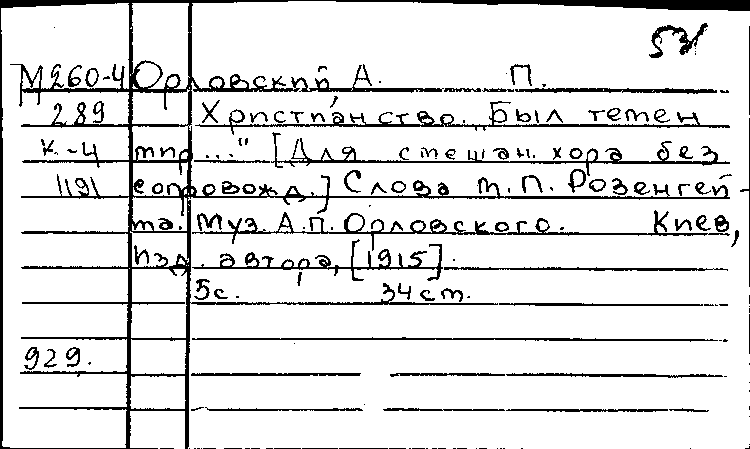 531
М260-4 Орловский А. П.
289 Христиа́нство. „Был темен
К-4 мир..." [Для смешан. хора без
1191 сопровожд.] Слова М.П. Розенгей-
ма. Муз. А.П. Орловского. Киев,
изд. автора, [1915].
5с. 34 см.
929.